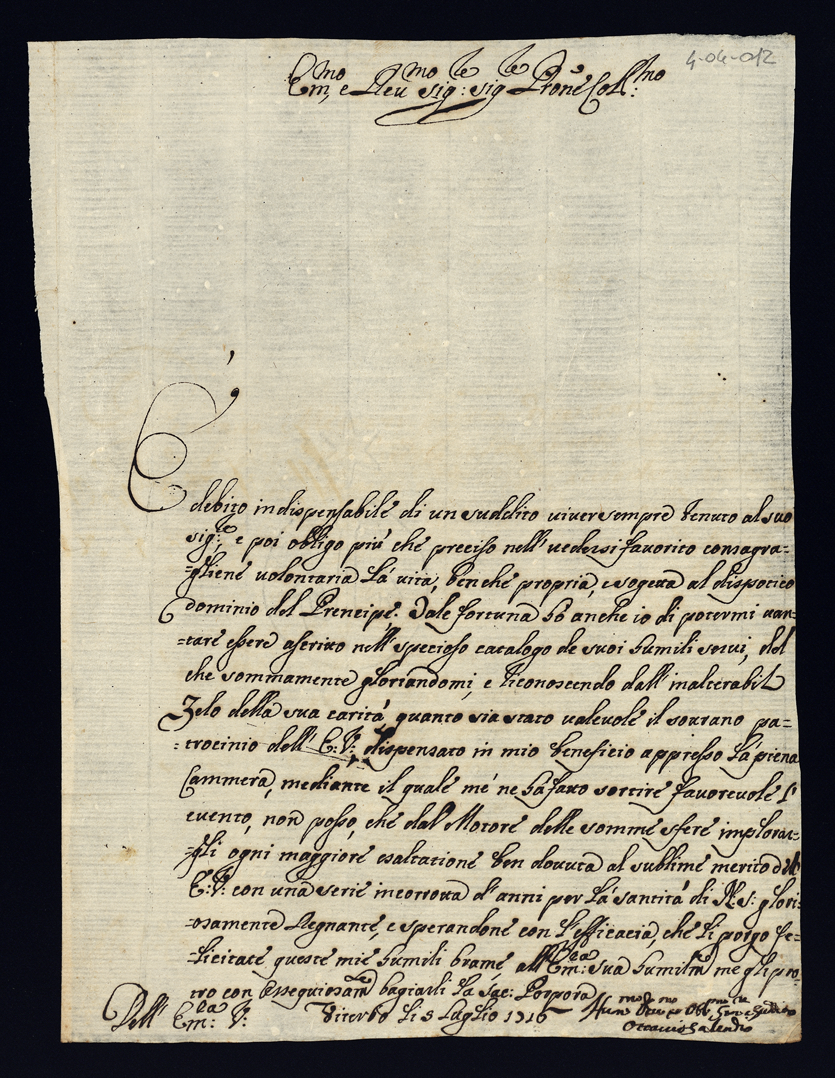 4-04-012
Em.mo e Reu.mo sig:re sig.re Prone Coll:mo
È
debito indispensabile di un suddito viver sempre tenuto al suo
sig:re e poi obligo più che preciso nell' vedersi favorito consagra=
=gliene volontaria la vita, benche propria, e sogetta al dispotico
dominio del Prencipe. Tale fortuna hò anche io di potermi van=
=tare essere ascritto nell' specioso catalogo de suoi humili servi, del
che sommamente gloriandomi, e riconoscendo dall' inalterabil
Zelo della sua carità quanto sia stato valevole il sovrano pa=
=trocinio dell' E: V: dispensato in mio beneficio appresso la piena
Cammera, mediante il quale me ne hà fatto sortire favorevole l'
evento, non posso, che dal Motore delle somme sfere implorar=
=gli ogni maggiore esaltatione ben dovuta al sublime merito dell'
E: V: con una serie incorrotta d'anni per la santità di N: s: glori=
=osamente Regnante, e sperandone con l'efficacia, che li porgo fe=
=licitate queste mie humili brame all' Em:za sua humilm me gli pro=
=tro con ossequiosam.te bagiarli la sac: Porpora
Dell' Em:za V: Viterbo li 5 luglio 1716 Hum:mo Dev:mo Obb:mo ser:re e suddito
Ottavio